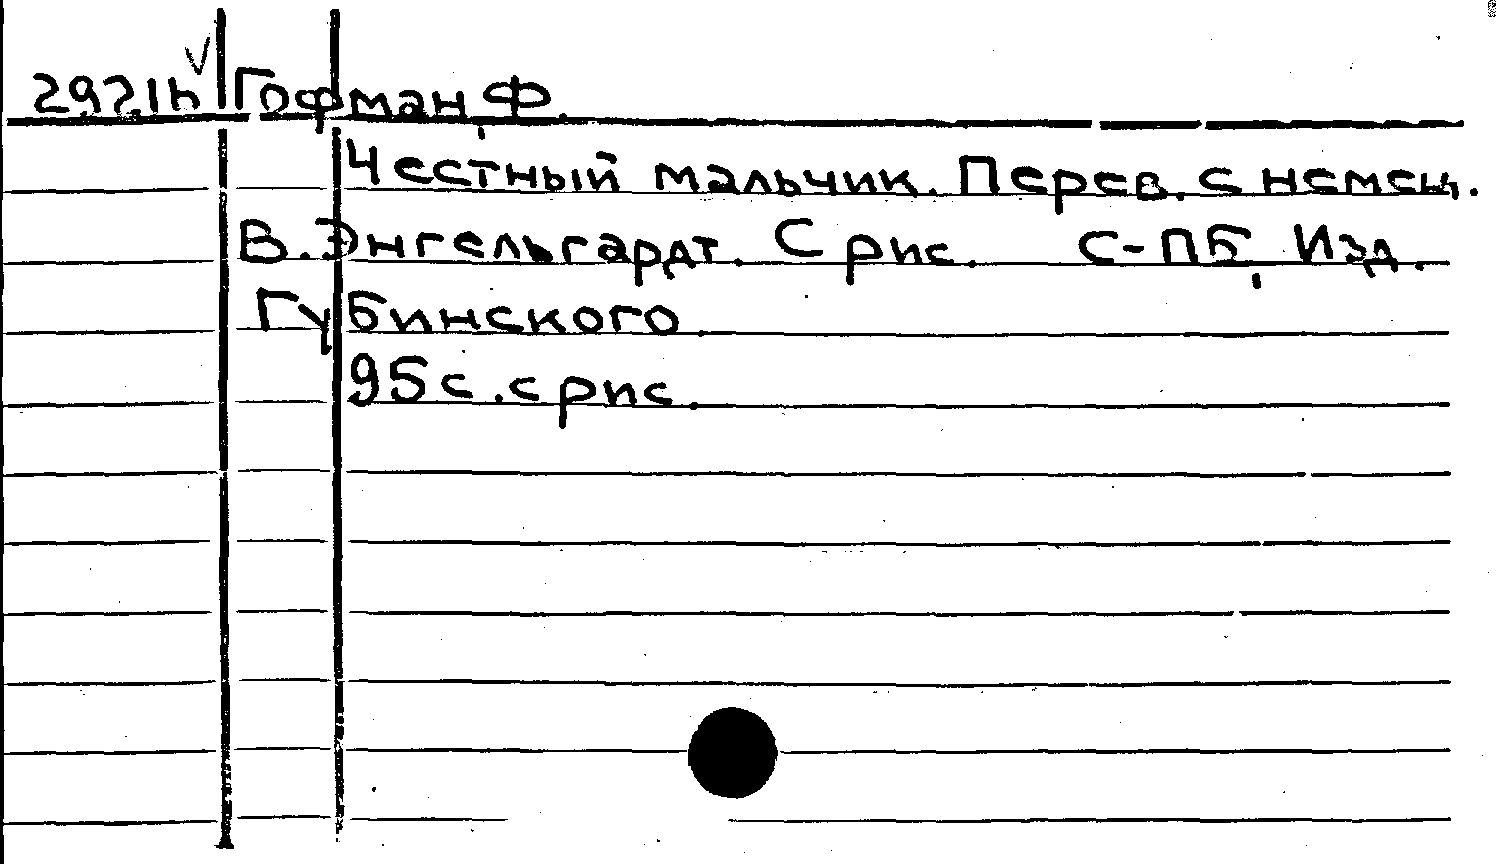 29.21h √ Гофман, Ф.
Честный мальчик. Перев. с немец.
В. Энгельгардт. С рис. С-ПБ, Изд.
Губинского
95 с. с рис.